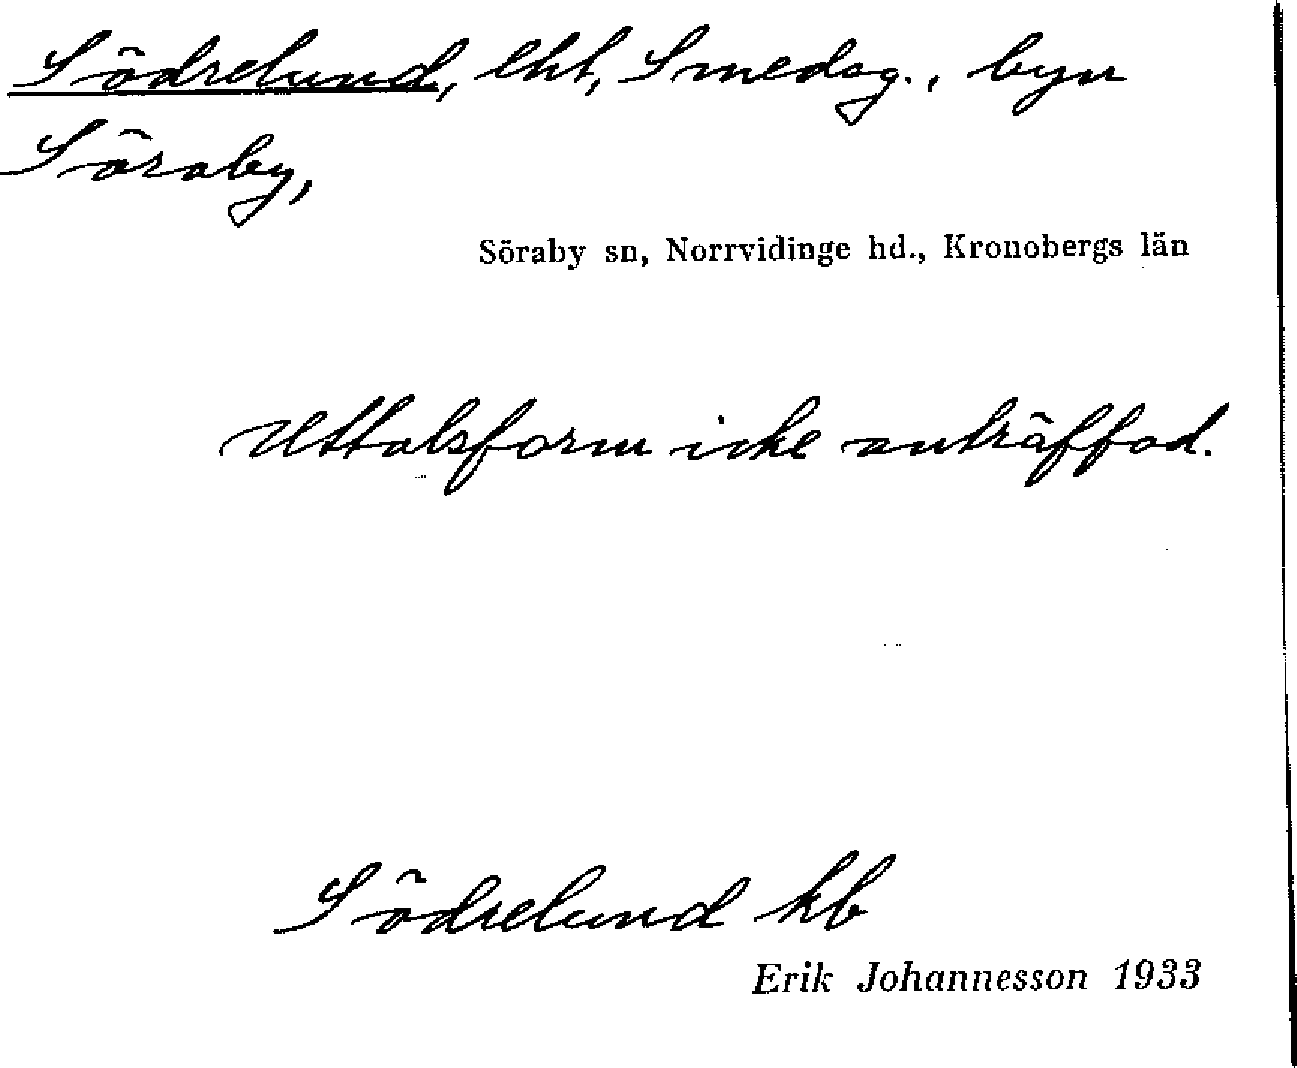 Södrelund, lht, Smedsg., byn
Söraby,
Söraby sn, Norrvidinge hd., Kronobergs län
Uttalsform icke anträffad.
Södrelund kb
Erik Johannesson 1933